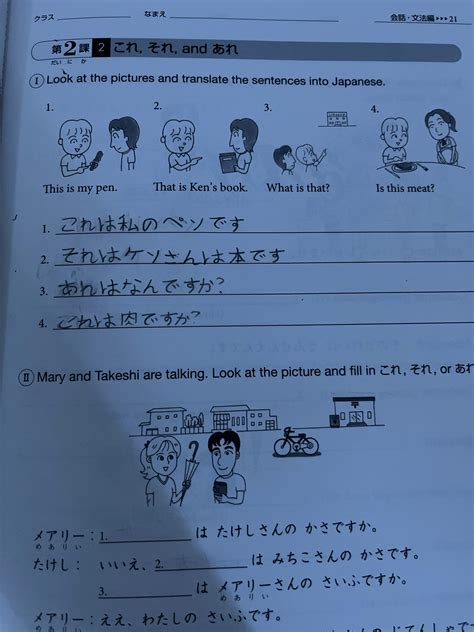 クラス なまえ 会話・文法編▸▸▸21
第2課 2 これ, それ, and あれ
だいにか
Ⅰ Look at the pictures and translate the sentences into Japanese.
1. 2. 3. 4.
This is my pen. That is Ken's book. What is that? Is this meat?
1. これは私のペソです
2. それはケソさんは本です
3. あれはなんですか?
4. これは肉ですか?
Ⅱ Mary and Takeshi are talking. Look at the picture and fill in これ, それ, or あれ
メアリー：1. は たけしさんの かさですか。
めありい
たけし：いいえ、2. は みちこさんの かさです。
3. は メアリーさんの さいふですか。
めありい
メアリー：ええ、わたしの さいふです。
めありい